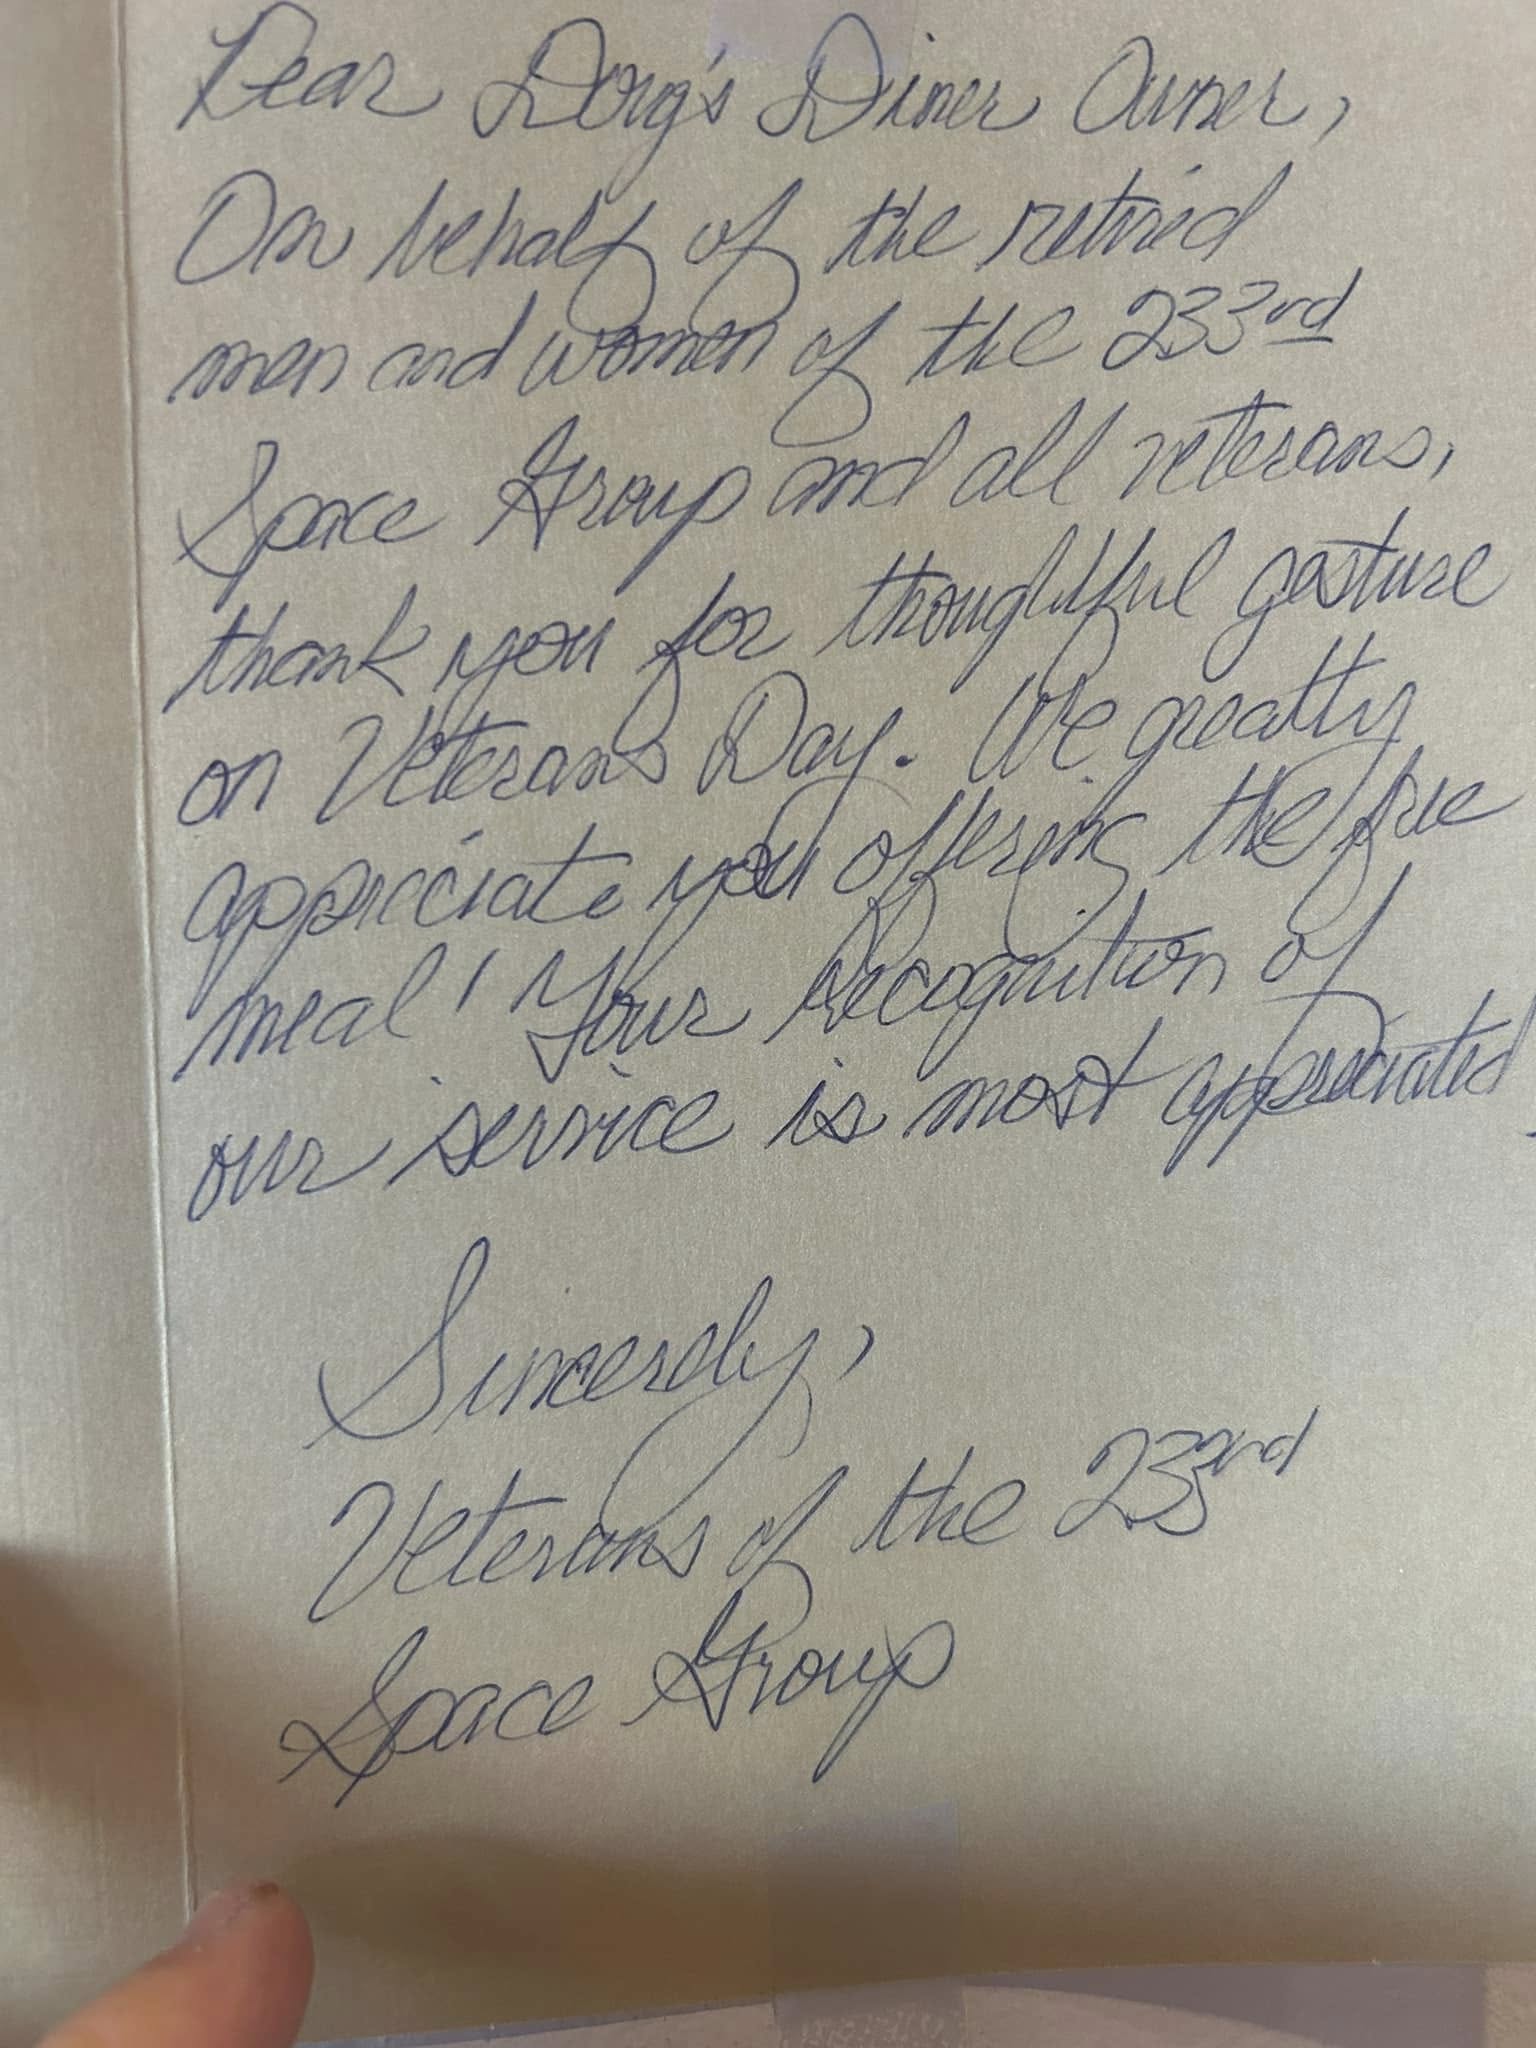 Dear Doug's Diner Owner,
On behalf of the retired
men and women of the 233rd
Space Group and all veterans,
thank you for thoughtful gesture
on Veterans Day. We greatly
appreciate you offering the free
meal! Your Recognition of
our service is most appreciated.
Sincerely,
Veterans of the 233rd
Space Group